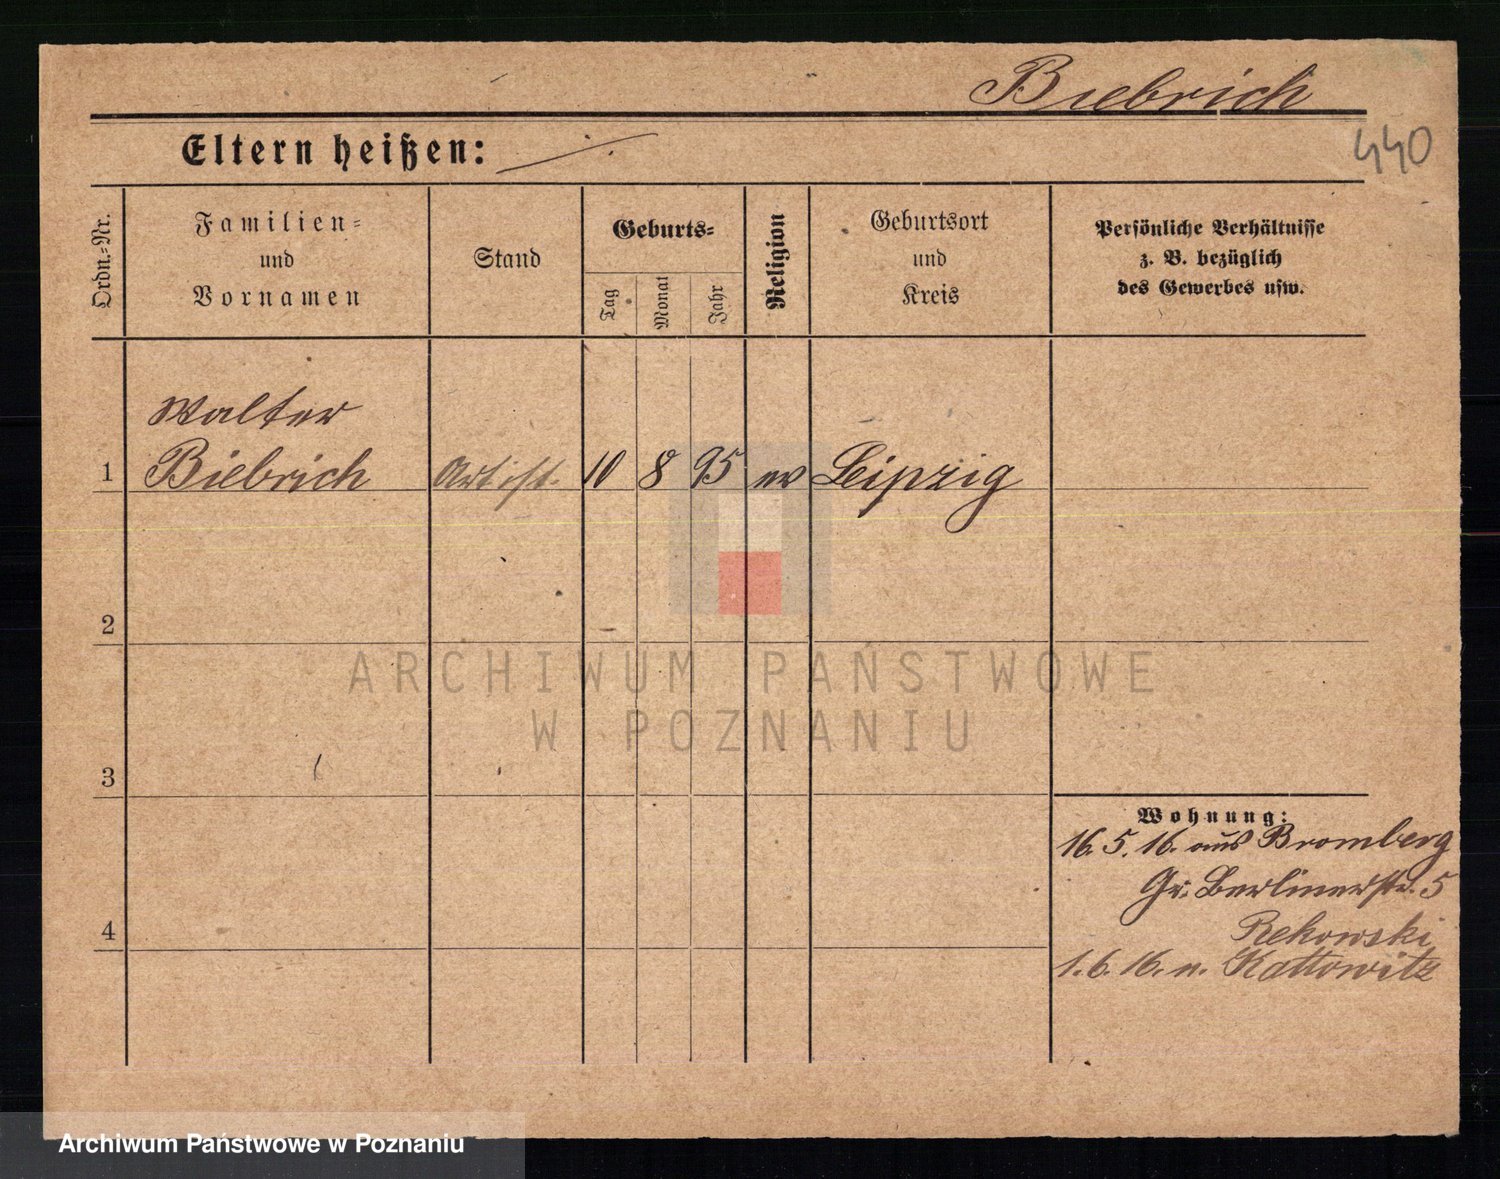 Biebrich
440
Eltern heißen:
Ordn.-Nr.
Familien-
und
Vornamen
Stand
Geburts-
Tag
Monat
Jahr
Religion
Geburtsort
und
Kreis
Persönliche Verhältnisse
z. B. bezüglich
des Gewerbes usw.
Walter
1 Biebrich Artist. 10 8 95 ev Leipzig
2
3
4
Wohnung:
16.5.16. aus Bromberg
Gr. Berlinerstr. 5
Rekowski
1.6.16. n. Kattowitz
ARCHIWUM PAŃSTWOWE
W POZNANIU
Archiwum Państwowe w Poznaniu